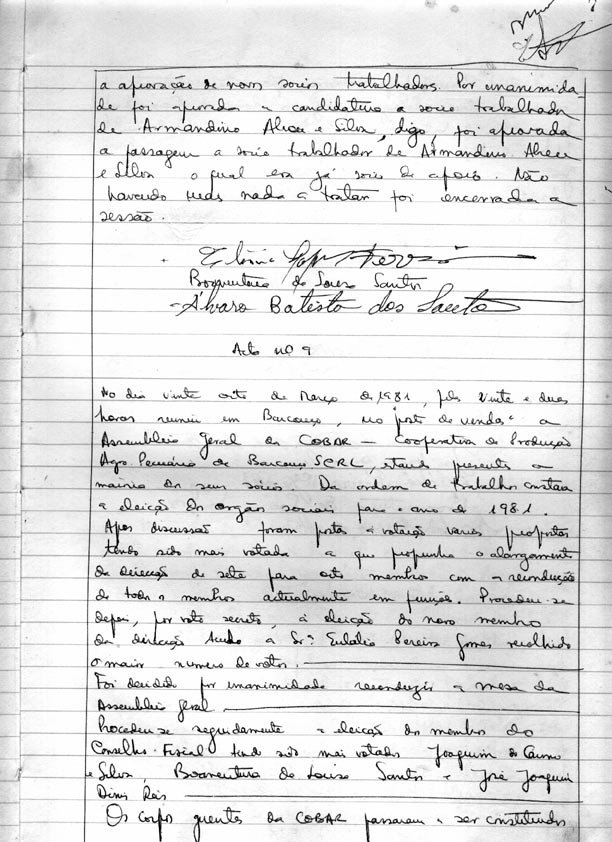 a aprovação de novos socios trabalhadores. Por unanimida
de foi aprovada a candidatura a socio trabalhador
de Armandino Alves e Silva, digo, foi aprovada
a passagem a socio trabalhador de Armandino Alves
e Silva o qual era já socio de apoio. Não
havendo mais nada a tratar foi encerrada a
sessão.
Boaventura de Sousa Santos
Álvaro Batista dos Santos
Acta nº 9
No dia vinte oito de Março de 1981, pelas vinte e duas
horas reuniu em Barcouço, no "posto de vendas" a
Assembleia Geral da COBAR - Cooperativa de Produção
Agro Pecuária de Barcouço SCRL, estando presentes a
maioria dos seus sócios. Da ordem de trabalhos constava
a eleição dos orgãos sociais para o ano de 1981.
Apos discussão foram postas à votação varias propostas
tendo sido mais votada a que propunha o alargamento
da direcção de sete para oito membros com a recondução
de todos os membros actualmente em funções. Procedeu-se
depois, por voto secreto, à eleição do novo membro
da direcção tendo a Srª Eulália Pereira Gomes recolhido
o maior numero de votos.
Foi decidido por unanimidade reconduzir a mesa da
Assembleia Geral.
Procedeu-se seguidamente a eleição dos membros do
Conselho Fiscal tendo sido mais votados Joaquim do Carmo
e Silva, Boaventura de Sousa Santos e José Joaquim
Dinis Reis
Os corpos gerentes da COBAR passaram a ser constituidos